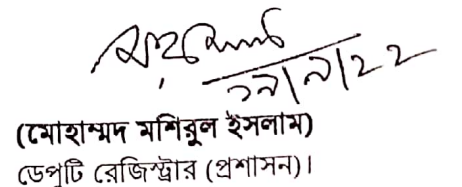 ২৯/৯/২২
(মোহাম্মদ মশিরুল ইসলাম)
ডেপুটি রেজিস্ট্রার (প্রশাসন)।